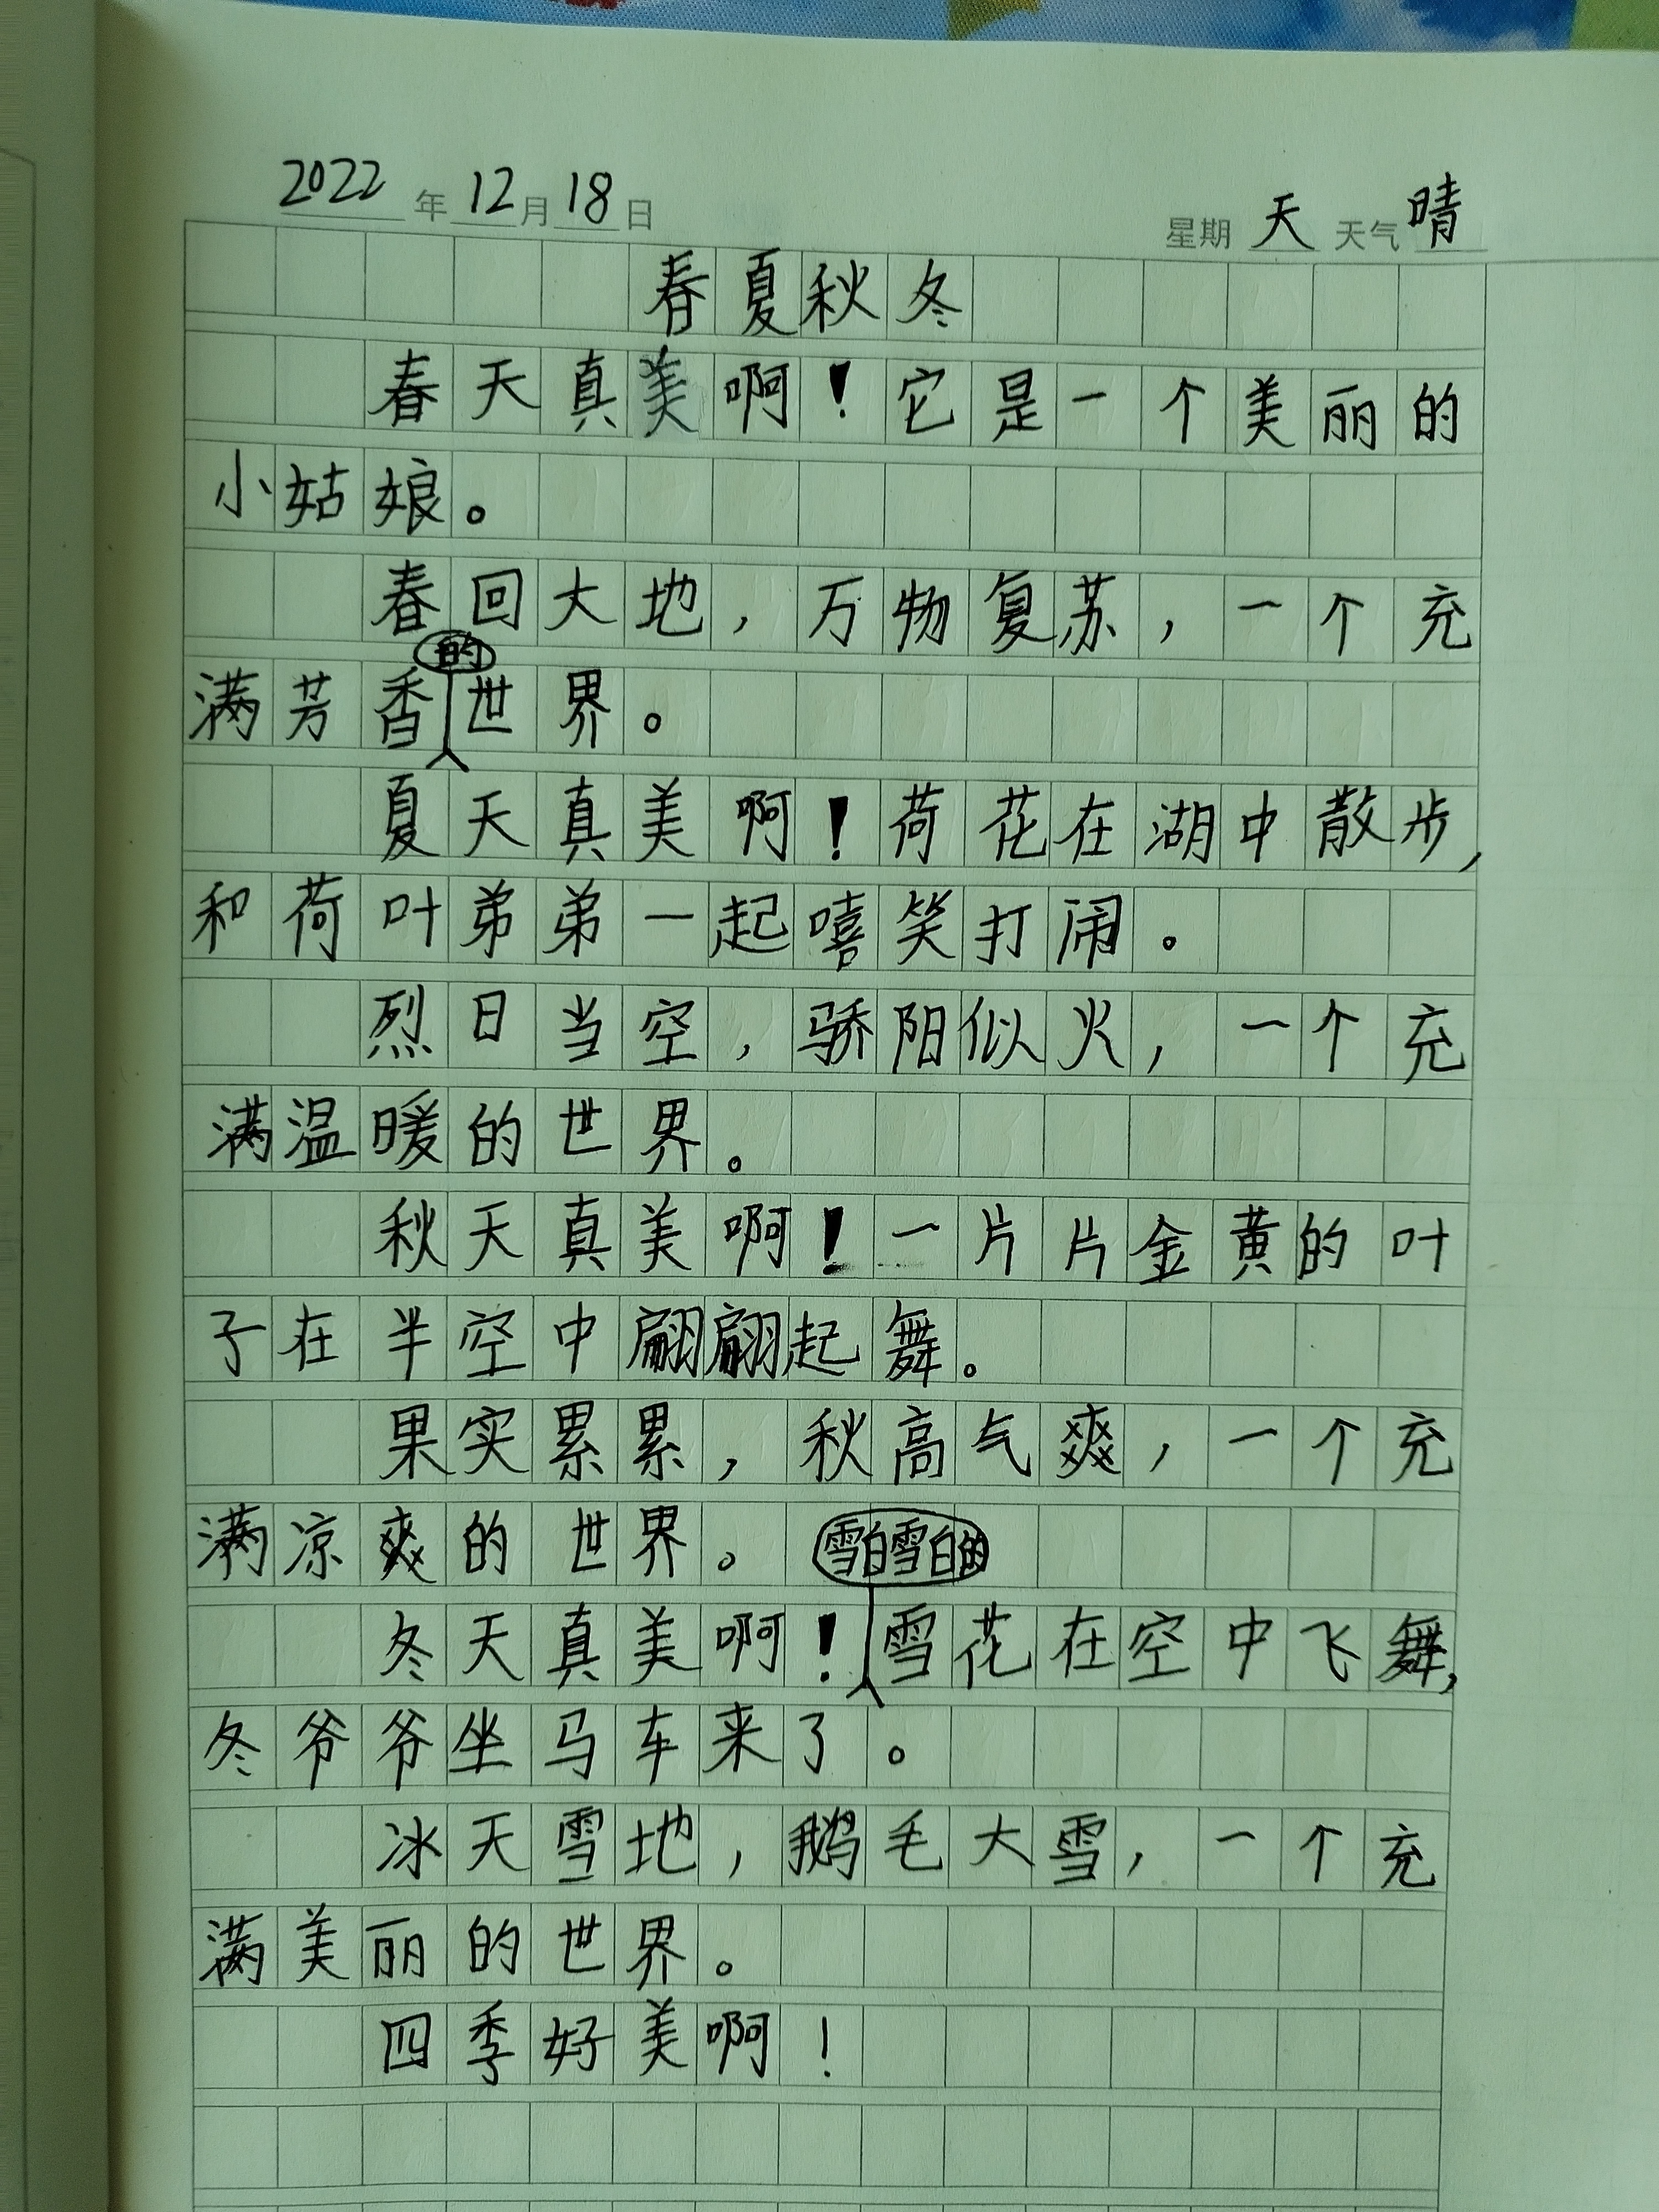 2022年12月18日 星期天 天气晴
春夏秋冬
春天真美啊！它是一个美丽的
小姑娘。
春回大地，万物复苏，一个充
满芳香的世界。
夏天真美啊！荷花在湖中散步，
和荷叶弟弟一起嘻笑打闹。
烈日当空，骄阳似火，一个充
满温暖的世界。
秋天真美啊！一片片金黄的叶
子在半空中翩翩起舞。
果实累累，秋高气爽，一个充
满凉爽的世界。
冬天真美啊！雪白雪白的雪花在空中飞舞，
冬爷爷坐马车来了。
冰天雪地，鹅毛大雪，一个充
满美丽的世界。
四季好美啊！